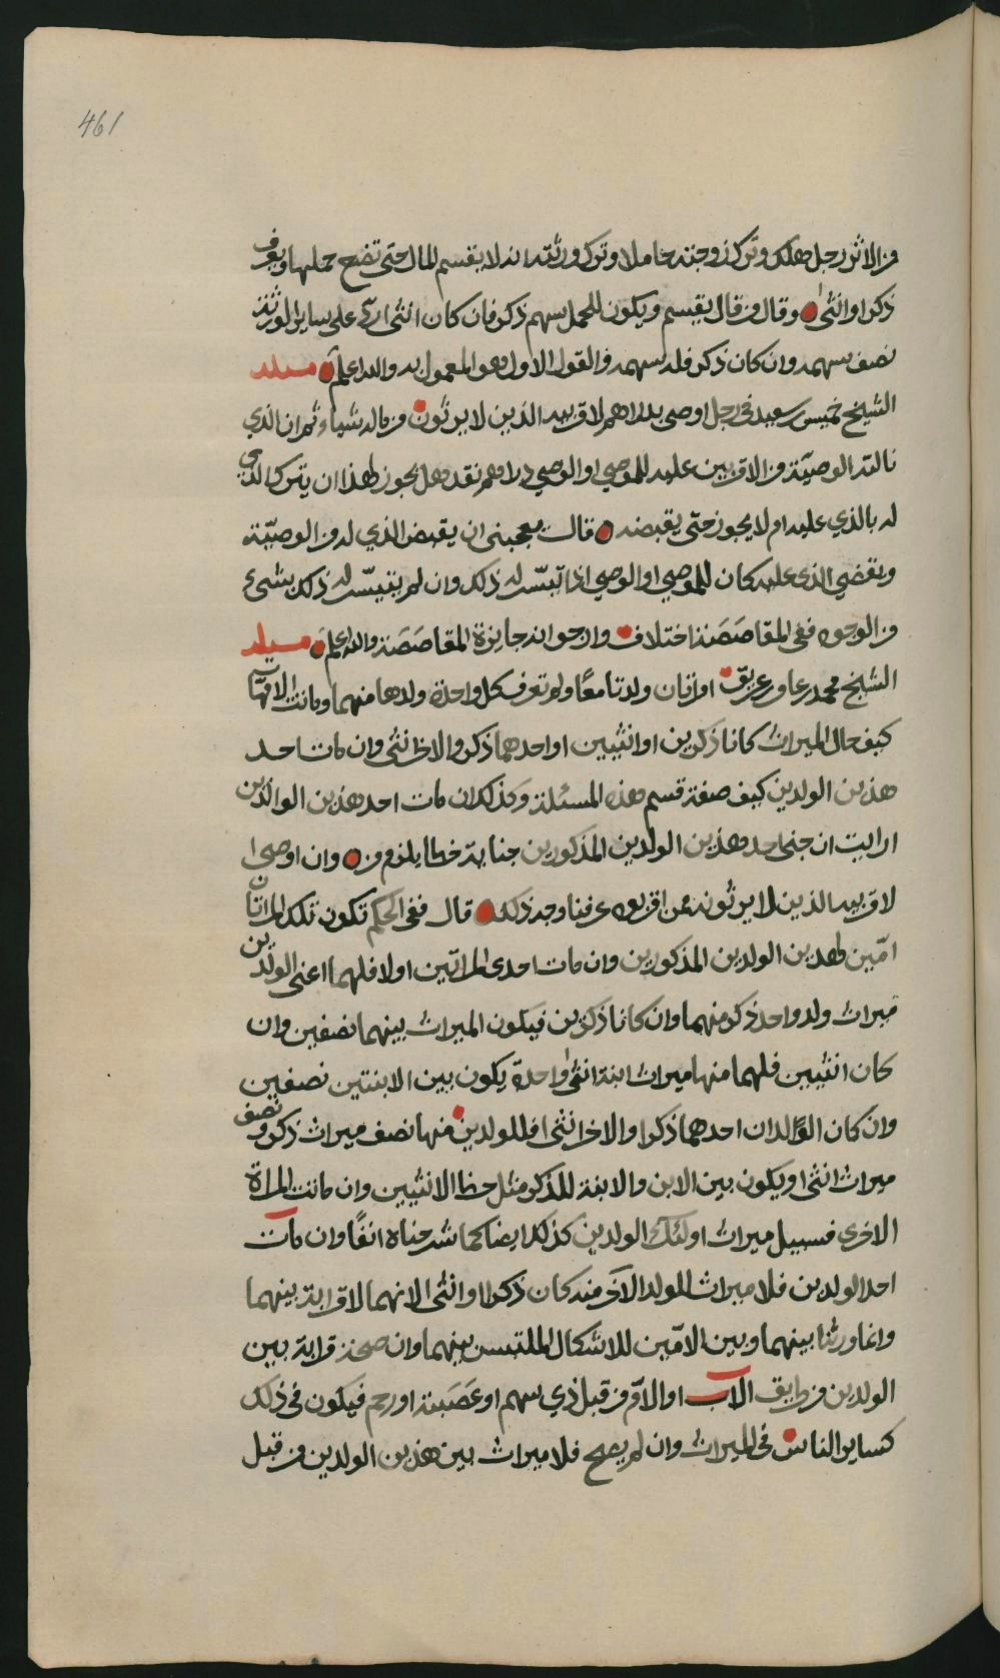 461
من الاثر رجل هلك وترك زوجته حاملا وترك ورثته انه لا يقسم المال حتى تضع حملها ويعرف
ذكرا او انثى وقال من قال يقسم ويكون للحمل سهم ذكر فان كان انثى ارد على ساير الورثة
نصف سهمه وان كان ذكر فله سهمه والقول الاول هو المعمول به والله اعلم مسئلة
الشيخ خميس سعيد في رجل اوصى بدراهم لاقربيه الذين لا يرثون من ماله شيا وثم ان الذي
نالته الوصيّة من الاقربين عليه للموصي او الوصي دراهم نقد هل يجوز لهذا ان يترك الذي
له بالذي عليه ام لا يجوز حتى يقبضه قال يعجبني ان يقبض الذي له من الوصيّة
ويقضي الذي عليه كان للموصي او الوصي اذا تيسّر له ذلك وان لم يتيسّر له ذلك بشيء
من الوجوه ففي المقاصَصَة اختلاف وارجوا انه جايزة المقاصَصَة والله اعلم مسئلة
الشيخ محمد عريق امراتان ولدتا معًا ولم تعرف كل واحدة ولدها منهما وماتت الامّهات
كيف حال الميراث كانا ذكرين او انثيين او احدهما ذكر والاخر انثى وان مات احد
هذين الولدين كيف صفة قسم هذه المسئلة وكذلك ان مات احد هذين الوالدين
ارايت ان جنى احد هذين الولدين المذكورين جناية خطا يلزم من وان اوصى
لاقربيه الذين لا يرثونه من اقربوه عرفنا وجه ذلك قال ففي الحكم تكون تلك المراتان
امّين لهذين الولدين المذكورين وان مات احدى المراتين اولا فلهما اعني الولدين
ميراث ولد واحد ذكر منهما وان كانا ذكرين فيكون الميراث بينهما نصفين وان
كان انثيين فلهما منها ميراث ابنة انثى واحدة يكون بين الابنتين نصفين
وان كان الوالدان احدهما ذكرا والاخر انثى فللولدين منها نصف ميراث ذكر ونصف
ميراث انثى او يكون بين الابن والابنة للذكر مثل حظ الانثيين وان ماتت المراة
الاخرى فسبيل ميراث اولئك الولدين كذلك ايضا كما شرحناه انفًا وان مات
احد الولدين فلا ميراث للولد الآخر منه كان ذكرا او انثى لانهما لا قرابة بينهما
وانما ورثنا بينهما وبين الامّين للاشكال الملتبس بينهما وان صحة قرابة بين
الولدين من طريق الاب او الامّ من قبل ذي سهم او عَصَبَة او رحم فيكون في ذلك
كساير الناس في الميراث وان لم يصح فلا ميراث بين هذين الولدين من قبل